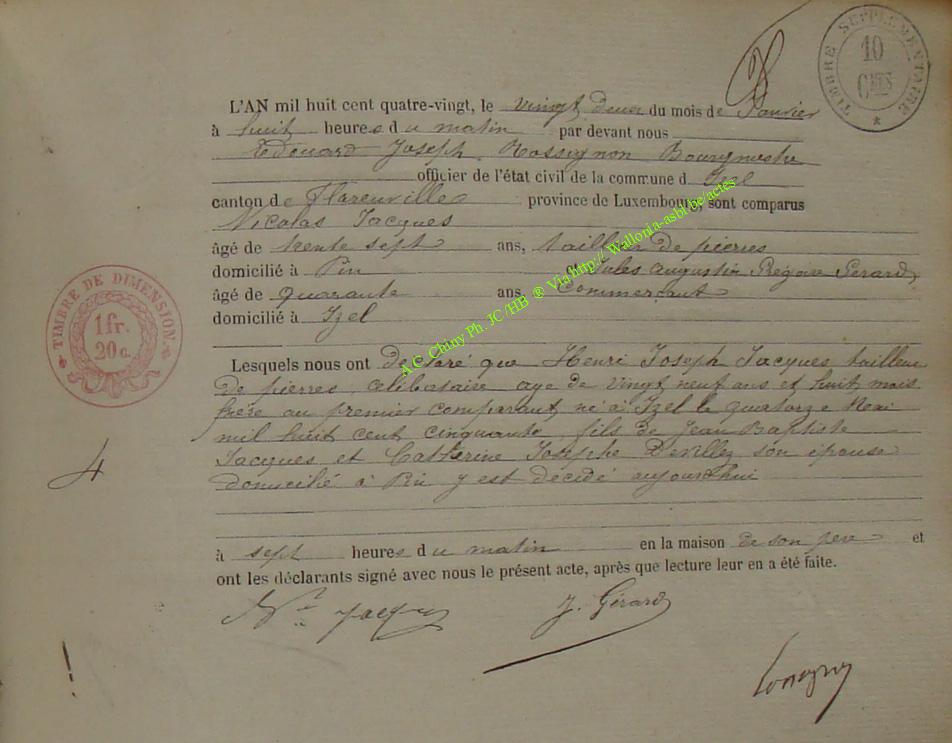 TIMBRE SUPPLEMENTAIRE
10
CMES
L'AN mil huit cent quatre-vingt, le vingt deux du mois de Janvier
à huit heures du matin par devant nous
Edouard Joseph Rossignon Bourgmestre
officier de l'état civil de la commune d Izel
canton de Florenville province de Luxembourg, sont comparus
Nicolas Jacques
âgé de trente sept ans, tailleur de pierres
domicilié à Pin et Jules Augustin Grégoire Gérard,
âgé de quarante ans Commerçant
domicilié à Izel
TIMBRE DE DIMENSION
1 fr.
20 c.
Lesquels nous ont déclaré que Henri Joseph Jacques tailleur
de pierres, célibataire agé de vingt neuf ans et huit mois
frère au premier comparant, né à Izel le quatorze Mai
mil huit cent cinquante fils de Jean Baptiste
Jacques et Catherine Josèphe Devillez son épouse
domicilié à Pin y est décédé aujourd'hui
4
à sept heures du matin en la maison de son père et
ont les déclarants signé avec nous le présent acte, après que lecture leur en a été faite.
Jacques J. Gérard
A.C. Chiny Ph. JC /HB ® Via http:// Wallonia-asbl.be/actes